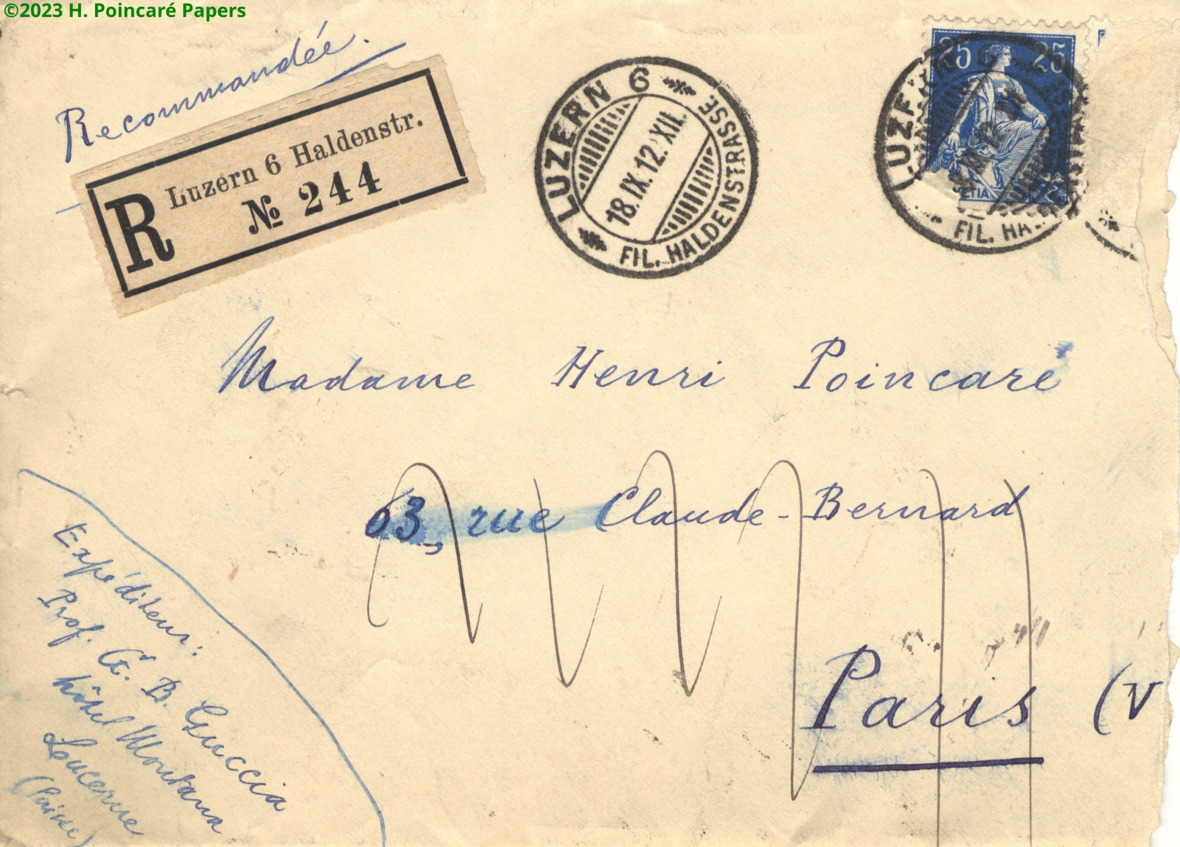 ©2023 H. Poincaré Papers
Recommandée.
R
Luzern 6 Haldenstr.
№ 244
LUZERN 6
18.IX.12.XII.
FIL. HALDENSTRASSE
25 25
LUZE
FIL. HA
Madame Henri Poincaré
63, rue Claude-Bernard
Paris (V
Expéditeur:
Prof. G. B. Guccia
hôtel Montana
Lucerne
(Suisse)